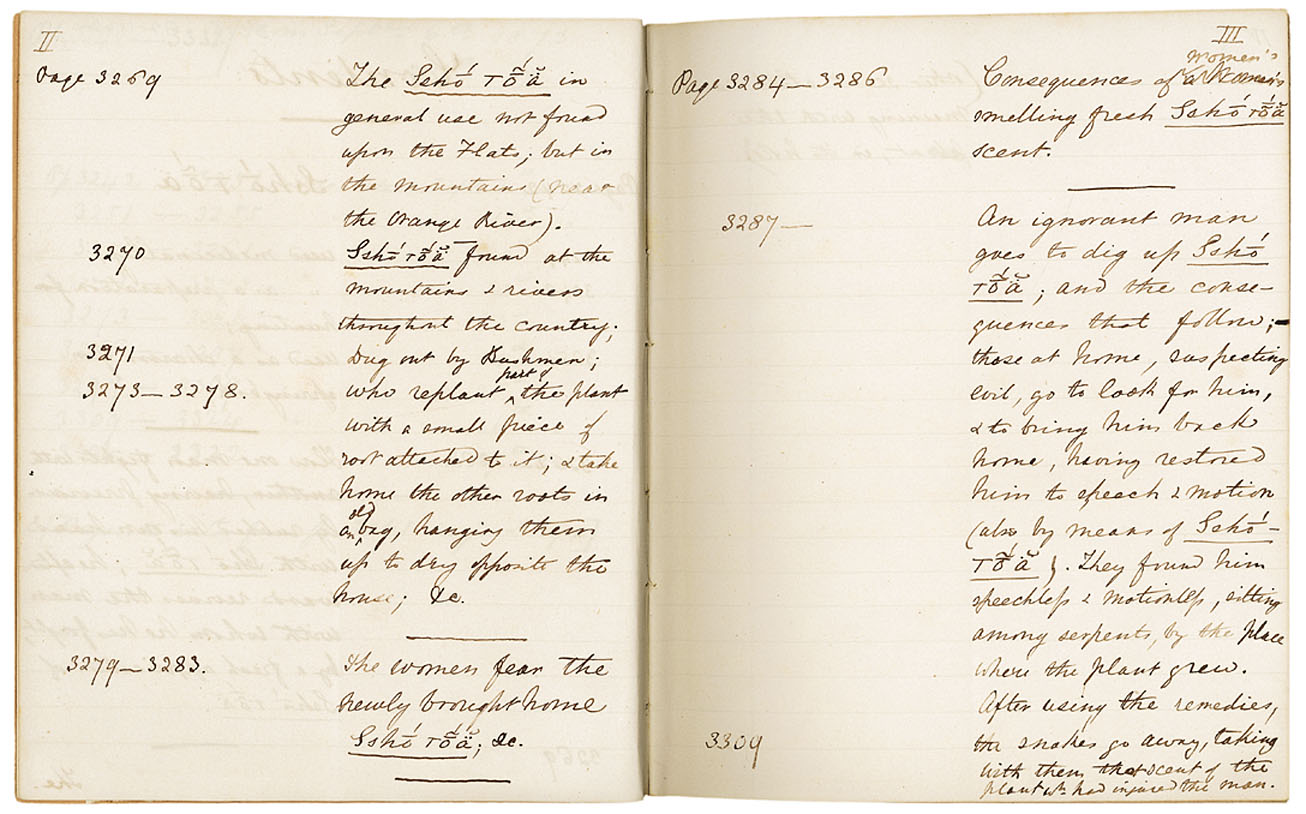 II
Page 3269 The Sshṓ τȭ́ä̆ in
general use not found
upon the Flats; but in
the mountains (near
the Orange River).
3270 Sshṓ τȭ́ä̆ found at the
mountains & rivers
throughout the country.
3271 Dug out by Bushmen;
3273—3278. who replant part of the plant
with a small piece of
root attached to it; & take
home the other roots in
an old bag, hanging them
up to dry opposite the
house; &c.
3279—3283. The women fear the
newly brought home
Sshṓ τȭ́ä̆; &c.
III
Page 3284—3286 Consequences of a Women's
smelling fresh Sshṓ τȭ́ä̆
scent.
3287— An ignorant man
goes to dig up Sshṓ
τȭ́ä̆; and the conse-
quences that follow;—
those at home, suspecting
evil, go to look for him,
& to bring him back
home, having restored
him to speech & motion
(also by means of Sshṓ-
τȭ́ä̆). They found him
speechless & motionless, sitting
among serpents, by the place
where the plant grew.
After using the remedies,
3309 the snakes go away, taking
with them the scent of the
plant wh. had injured the man.